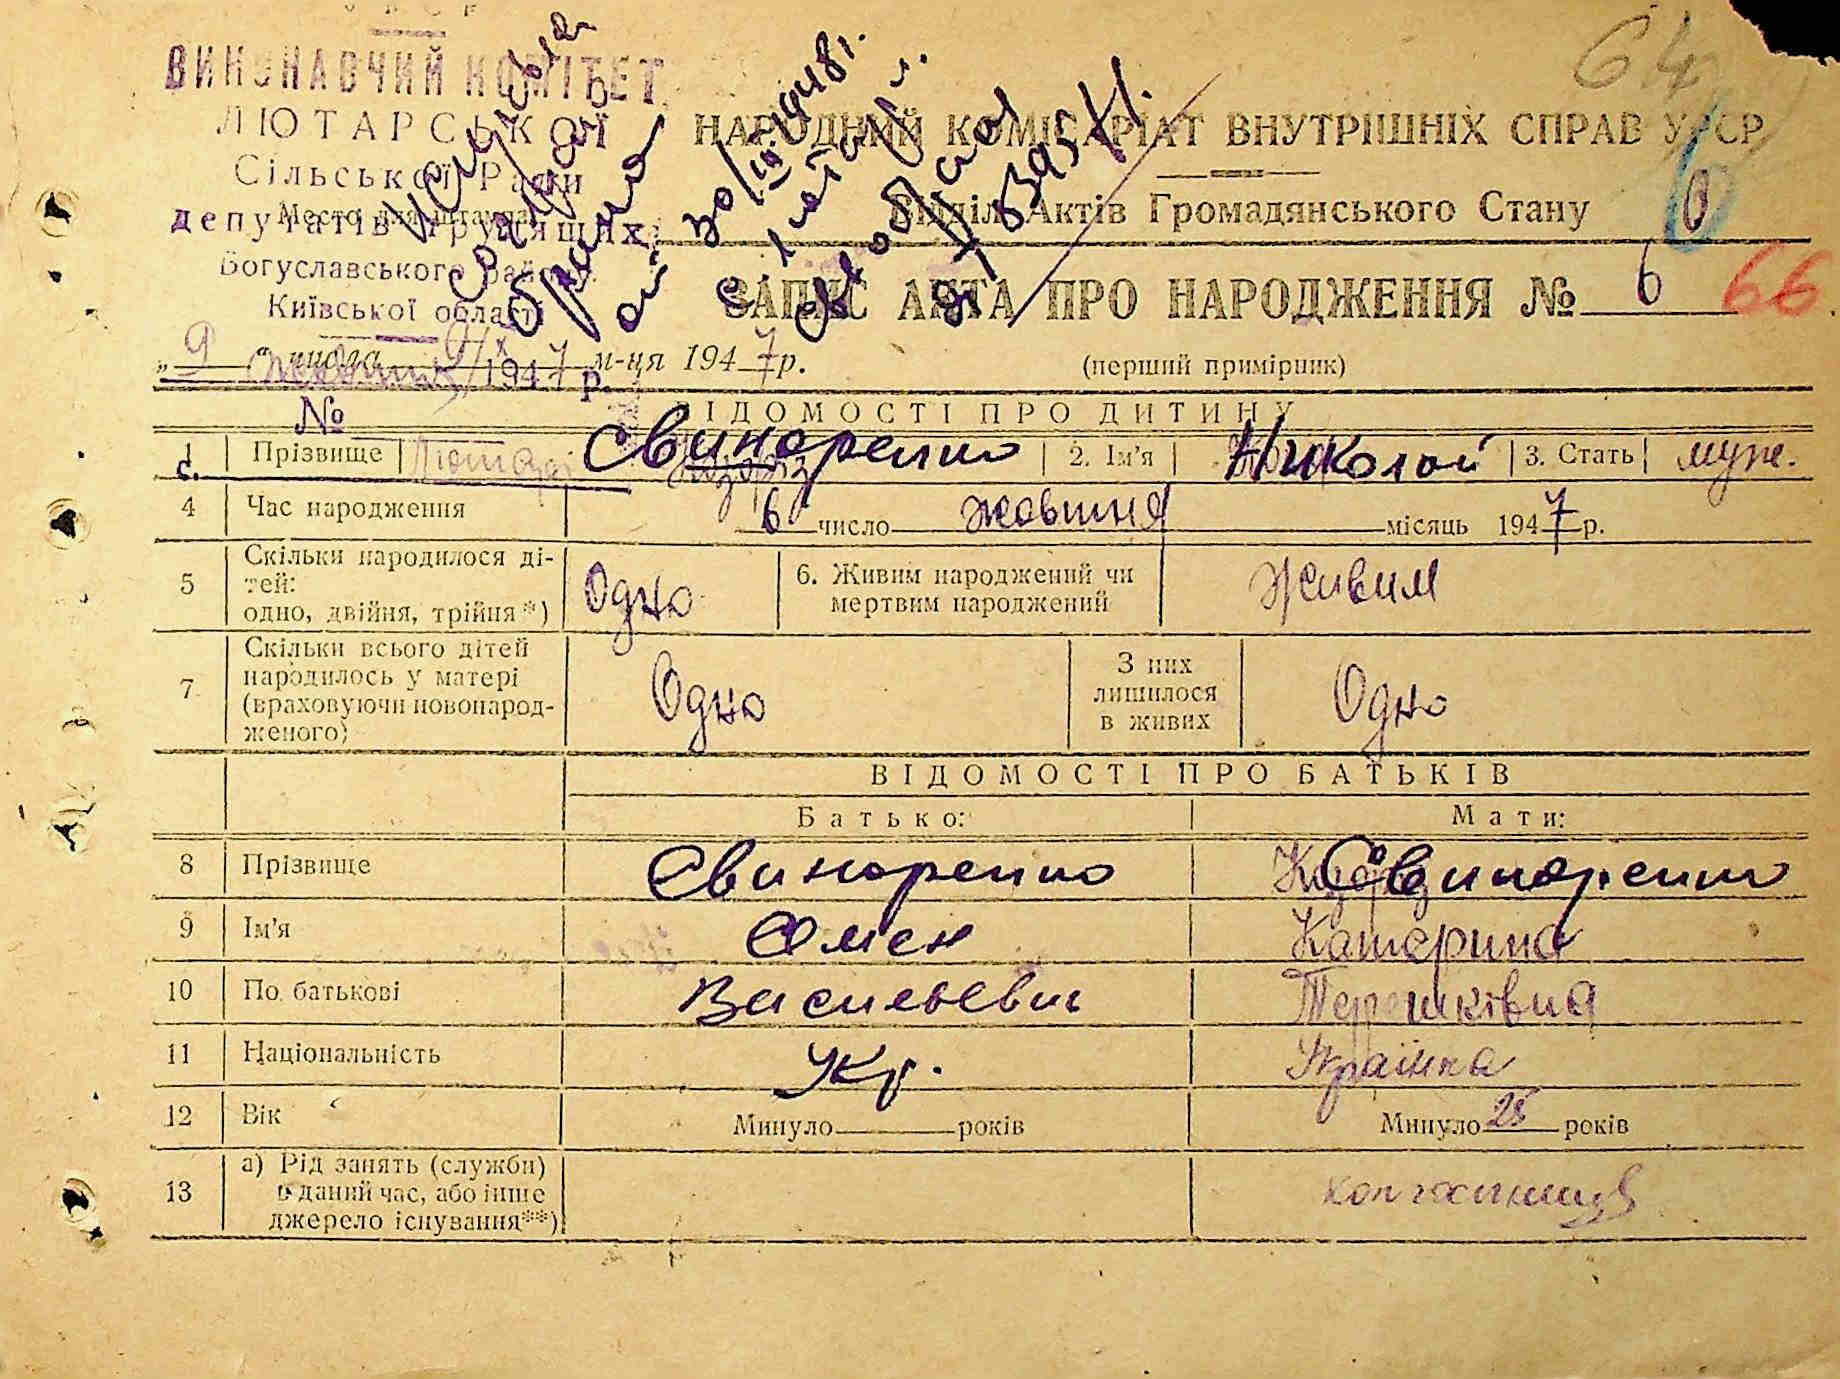 УРСР
ВИКОНАВЧИЙ КОМІТЕТ
ЛЮТАРСЬКОЇ
Сільської Ради
депутатів трудящих
Богуславського району
Київської області
9 жовтня 1947 р.
№
с. Лютарі
64
НАРОДНИЙ КОМІСАРІАТ ВНУТРІШНІХ СПРАВ УРСР
Відділ Актів Громадянського Стану
6
ЗАПИС АКТА ПРО НАРОДЖЕННЯ № 6 66
„9“ числа м-ця 1947 р.
(перший примірник)
ВІДОМОСТІ ПРО ДИТИНУ
1 Прізвище Свинаренко 2. Ім'я Николай 3. Стать муж.
4 Час народження 6 число жовтня місяць 1947 р.
5 Скільки народилося ді-
тей:
одно, двійня, трійня*) Одно 6. Живим народжений чи
мертвим народжений Живим
7 Скільки всього дітей
народилось у матері
(враховуючи новонарод-
женого) Одно З них
лишилося
в живих Одно
ВІДОМОСТІ ПРО БАТЬКІВ
Батько: Мати:
8 Прізвище Свинаренко Свинаренко
9 Ім'я Семен Катерина
10 По батькові Васильевич Терешківна
11 Національність Укр. Українка
12 Вік Минуло років Минуло 25 років
13 а) Рід занять (служби)
в даний час, або інше
джерело існування**) колгоспниця